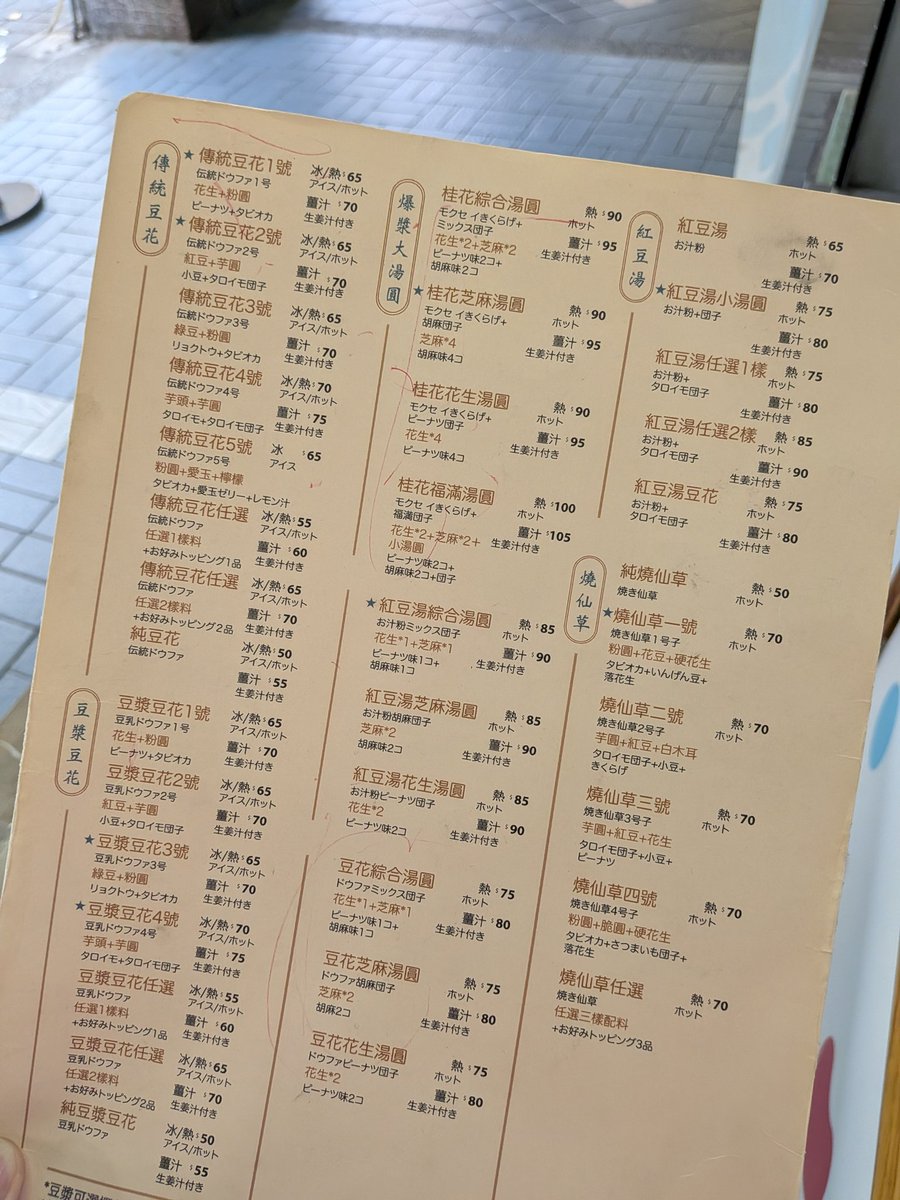 傳統豆花
★傳統豆花1號 冰/熱 $65
伝統ドウファ1号 アイス/ホット
花生+粉圓 薑汁 $70
ピーナツ+タピオカ 生姜汁付き
★傳統豆花2號 冰/熱 $65
伝統ドウファ2号 アイス/ホット
紅豆+芋圓 薑汁 $70
小豆+タロイモ団子 生姜汁付き
傳統豆花3號 冰/熱 $65
伝統ドウファ3号 アイス/ホット
綠豆+粉圓 薑汁 $70
リョクトウ+タピオカ 生姜汁付き
傳統豆花4號 冰/熱 $70
伝統ドウファ4号 アイス/ホット
芋頭+芋圓 薑汁 $75
タロイモ+タロイモ団子 生姜汁付き
傳統豆花5號 冰 $65
伝統ドウファ5号 アイス
粉圓+愛玉+檸檬
タピオカ+愛玉ゼリー+レモン汁
傳統豆花任選 冰/熱 $55
伝統ドウファ アイス/ホット
任選1樣料 薑汁 $60
+お好みトッピング1品 生姜汁付き
傳統豆花任選 冰/熱 $65
伝統ドウファ アイス/ホット
任選2樣料 薑汁 $70
+お好みトッピング2品 生姜汁付き
純豆花 冰/熱 $50
伝統ドウファ アイス/ホット
薑汁 $55
生姜汁付き
豆漿豆花
豆漿豆花1號 冰/熱 $65
豆乳ドウファ1号 アイス/ホット
花生+粉圓 薑汁 $70
ピーナツ+タピオカ 生姜汁付き
豆漿豆花2號 冰/熱 $65
豆乳ドウファ2号 アイス/ホット
紅豆+芋圓 薑汁 $70
小豆+タロイモ団子 生姜汁付き
★豆漿豆花3號 冰/熱 $65
豆乳ドウファ3号 アイス/ホット
綠豆+粉圓 薑汁 $70
リョクトウ+タピオカ 生姜汁付き
★豆漿豆花4號 冰/熱 $70
豆乳ドウファ4号 アイス/ホット
芋頭+芋圓 薑汁 $75
タロイモ+タロイモ団子 生姜汁付き
豆漿豆花任選 冰/熱 $55
豆乳ドウファ アイス/ホット
任選1樣料 薑汁 $60
+お好みトッピング1品 生姜汁付き
豆漿豆花任選 冰/熱 $65
豆乳ドウファ アイス/ホット
任選2樣料 薑汁 $70
+お好みトッピング2品 生姜汁付き
純豆漿豆花 冰/熱 $50
豆乳ドウファ アイス/ホット
薑汁 $55
生姜汁付き
爆漿大湯圓
桂花綜合湯圓 熱 $90
モクセイきくらげ+ ホット
ミックス団子
花生*2+芝麻*2 薑汁 $95
ピーナツ味2コ+ 生姜汁付き
胡麻味2コ
★桂花芝麻湯圓 熱 $90
モクセイきくらげ+ ホット
胡麻団子
芝麻*4 薑汁 $95
胡麻味4コ 生姜汁付き
桂花花生湯圓 熱 $90
モクセイきくらげ+ ホット
ピーナツ団子
花生*4 薑汁 $95
ピーナツ味4コ 生姜汁付き
桂花福滿湯圓 熱 $100
モクセイきくらげ+ ホット
福満団子
花生*2+芝麻*2+ 薑汁 $105
小湯圓 生姜汁付き
ピーナツ味2コ+
胡麻味2コ+団子
★紅豆湯綜合湯圓 熱 $85
お汁粉ミックス団子 ホット
花生*1+芝麻*1 薑汁 $90
ピーナツ味1コ+ 生姜汁付き
胡麻味1コ
紅豆湯芝麻湯圓 熱 $85
お汁粉胡麻団子 ホット
芝麻*2 薑汁 $90
胡麻味2コ 生姜汁付き
紅豆湯花生湯圓 熱 $85
お汁粉ピーナツ団子 ホット
花生*2 薑汁 $90
ピーナツ味2コ 生姜汁付き
豆花綜合湯圓 熱 $75
ドウファミックス団子 ホット
花生*1+芝麻*1 薑汁 $80
ピーナツ味1コ+ 生姜汁付き
胡麻味1コ
豆花芝麻湯圓 熱 $75
ドウファ胡麻団子 ホット
芝麻*2 薑汁 $80
胡麻2コ 生姜汁付き
豆花花生湯圓 熱 $75
ドウファピーナツ団子 ホット
花生*2 薑汁 $80
ピーナツ味2コ 生姜汁付き
紅豆湯
紅豆湯 熱 $65
お汁粉 ホット
薑汁 $70
生姜汁付き
★紅豆湯小湯圓 熱 $75
お汁粉+団子 ホット
薑汁 $80
生姜汁付き
紅豆湯任選1樣 熱 $75
お汁粉+ ホット
タロイモ団子 薑汁 $80
生姜汁付き
紅豆湯任選2樣 熱 $85
お汁粉+ ホット
タロイモ団子 薑汁 $90
生姜汁付き
紅豆湯豆花 熱 $75
お汁粉+ ホット
タロイモ団子 薑汁 $80
生姜汁付き
燒仙草
純燒仙草 熱 $50
焼き仙草 ホット
★燒仙草一號 熱 $70
焼き仙草1号子 ホット
粉圓+花豆+硬花生
タピオカ+いんげん豆+
落花生
燒仙草二號 熱 $70
焼き仙草2号子 ホット
芋圓+紅豆+白木耳
タロイモ団子+小豆+
きくらげ
燒仙草三號 熱 $70
焼き仙草3号子 ホット
芋圓+紅豆+花生
タロイモ団子+小豆+
ピーナツ
燒仙草四號 熱 $70
焼き仙草4号子 ホット
粉圓+脆圓+硬花生
タピオカ+さつまいも団子+
落花生
燒仙草任選 熱 $70
焼き仙草 ホット
任選三樣配料
+お好みトッピング3品